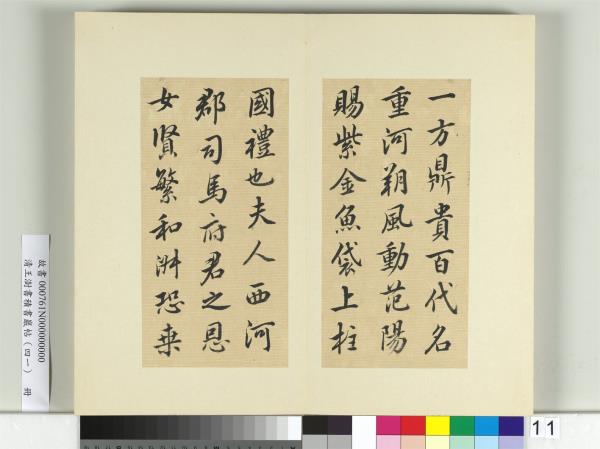 一方鼎貴百代名
重河朔風動范陽
賜紫金魚袋上柱
國禮也夫人西河
郡司馬府君之恩
女賢繁和淑恐乖
故書 000761N000000000
清王澍書積書巖帖(四一) 冊
11